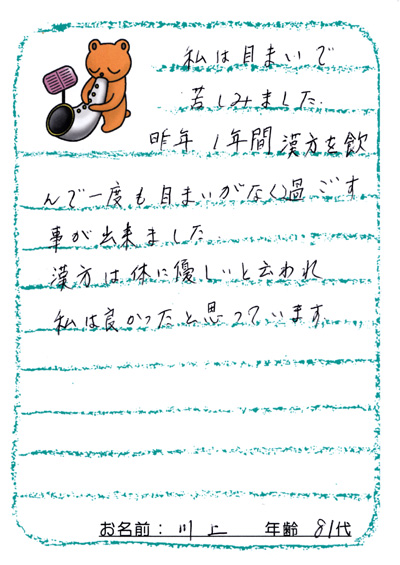 私は目まいで
苦しみました.
昨年、1年間漢方を飲
んで一度も目まいがなく過ごす
事が出来ました.
漢方は体に優しいと云われ
私は良かったと思っています.
お名前：川上 年齢 81代